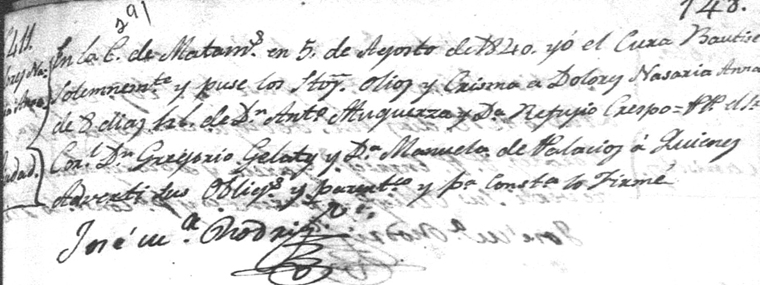 291
148.
En la C. de Matam.s en 5. de Agosto de 1840. yó el Cura Bautise
Solemnem.te y puse los Stos. Olios y Crisma a Dolores Nasaria Anna
de 8 dias h.l. de Dn Ant.o Muguerza y Da Refugio Crespo = PP. el
Cor.l Dn Gregorio Gelaty y D.a Manuela de Palacios á Quienes
Adverti sus Oblig.s y parent.co y p.a Consta lo Firmé
José M.a Rodrig.z